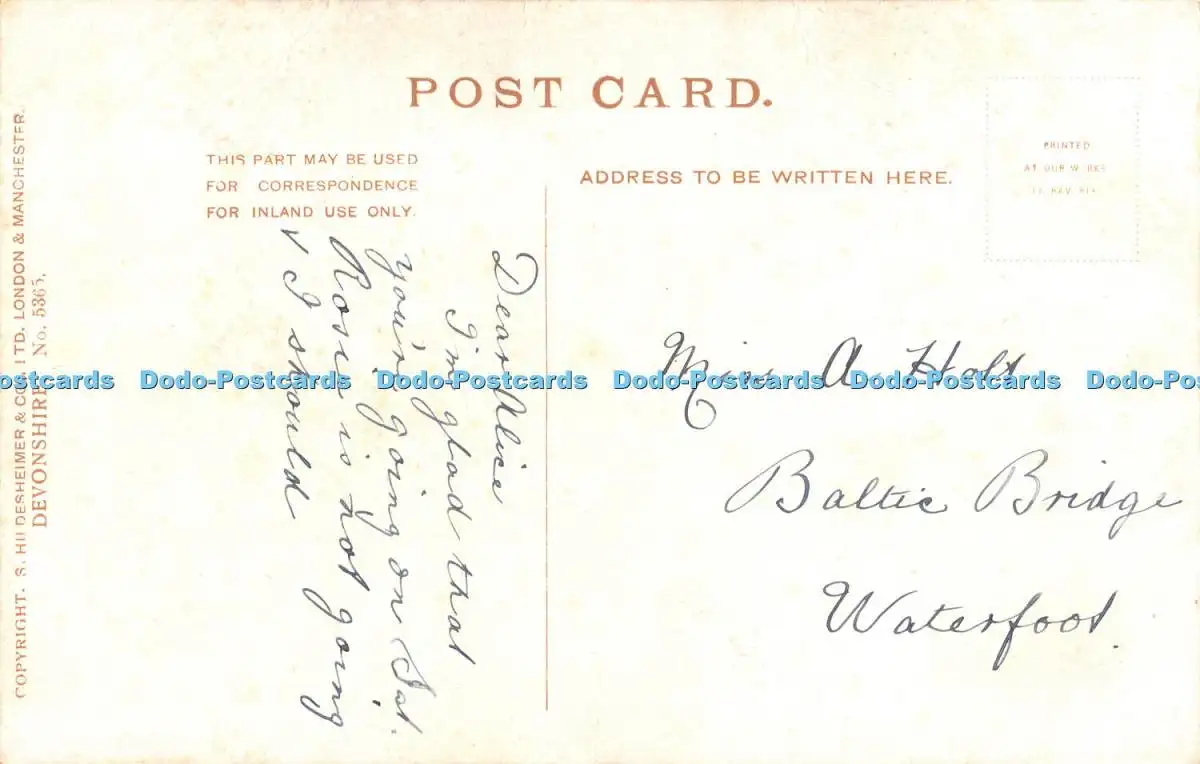 POST CARD.
THIS PART MAY BE USED
FOR CORRESPONDENCE
FOR INLAND USE ONLY.
ADDRESS TO BE WRITTEN HERE.
PRINTED
AT OUR W RKS
COPYRIGHT. S. HILDESHEIMER & CO. LTD. LONDON & MANCHESTER.
DEVONSHIRE No. 5365.
Dear Alice
I'm glad that
you'r going on Sat.
Rosie is not going
I should
Miss A. Holt
Baltic Bridge
Waterfoot.
ostcards Dodo-Postcards Dodo-Postcards Dodo-Postcards Dodo-Postcards Dodo-Pos